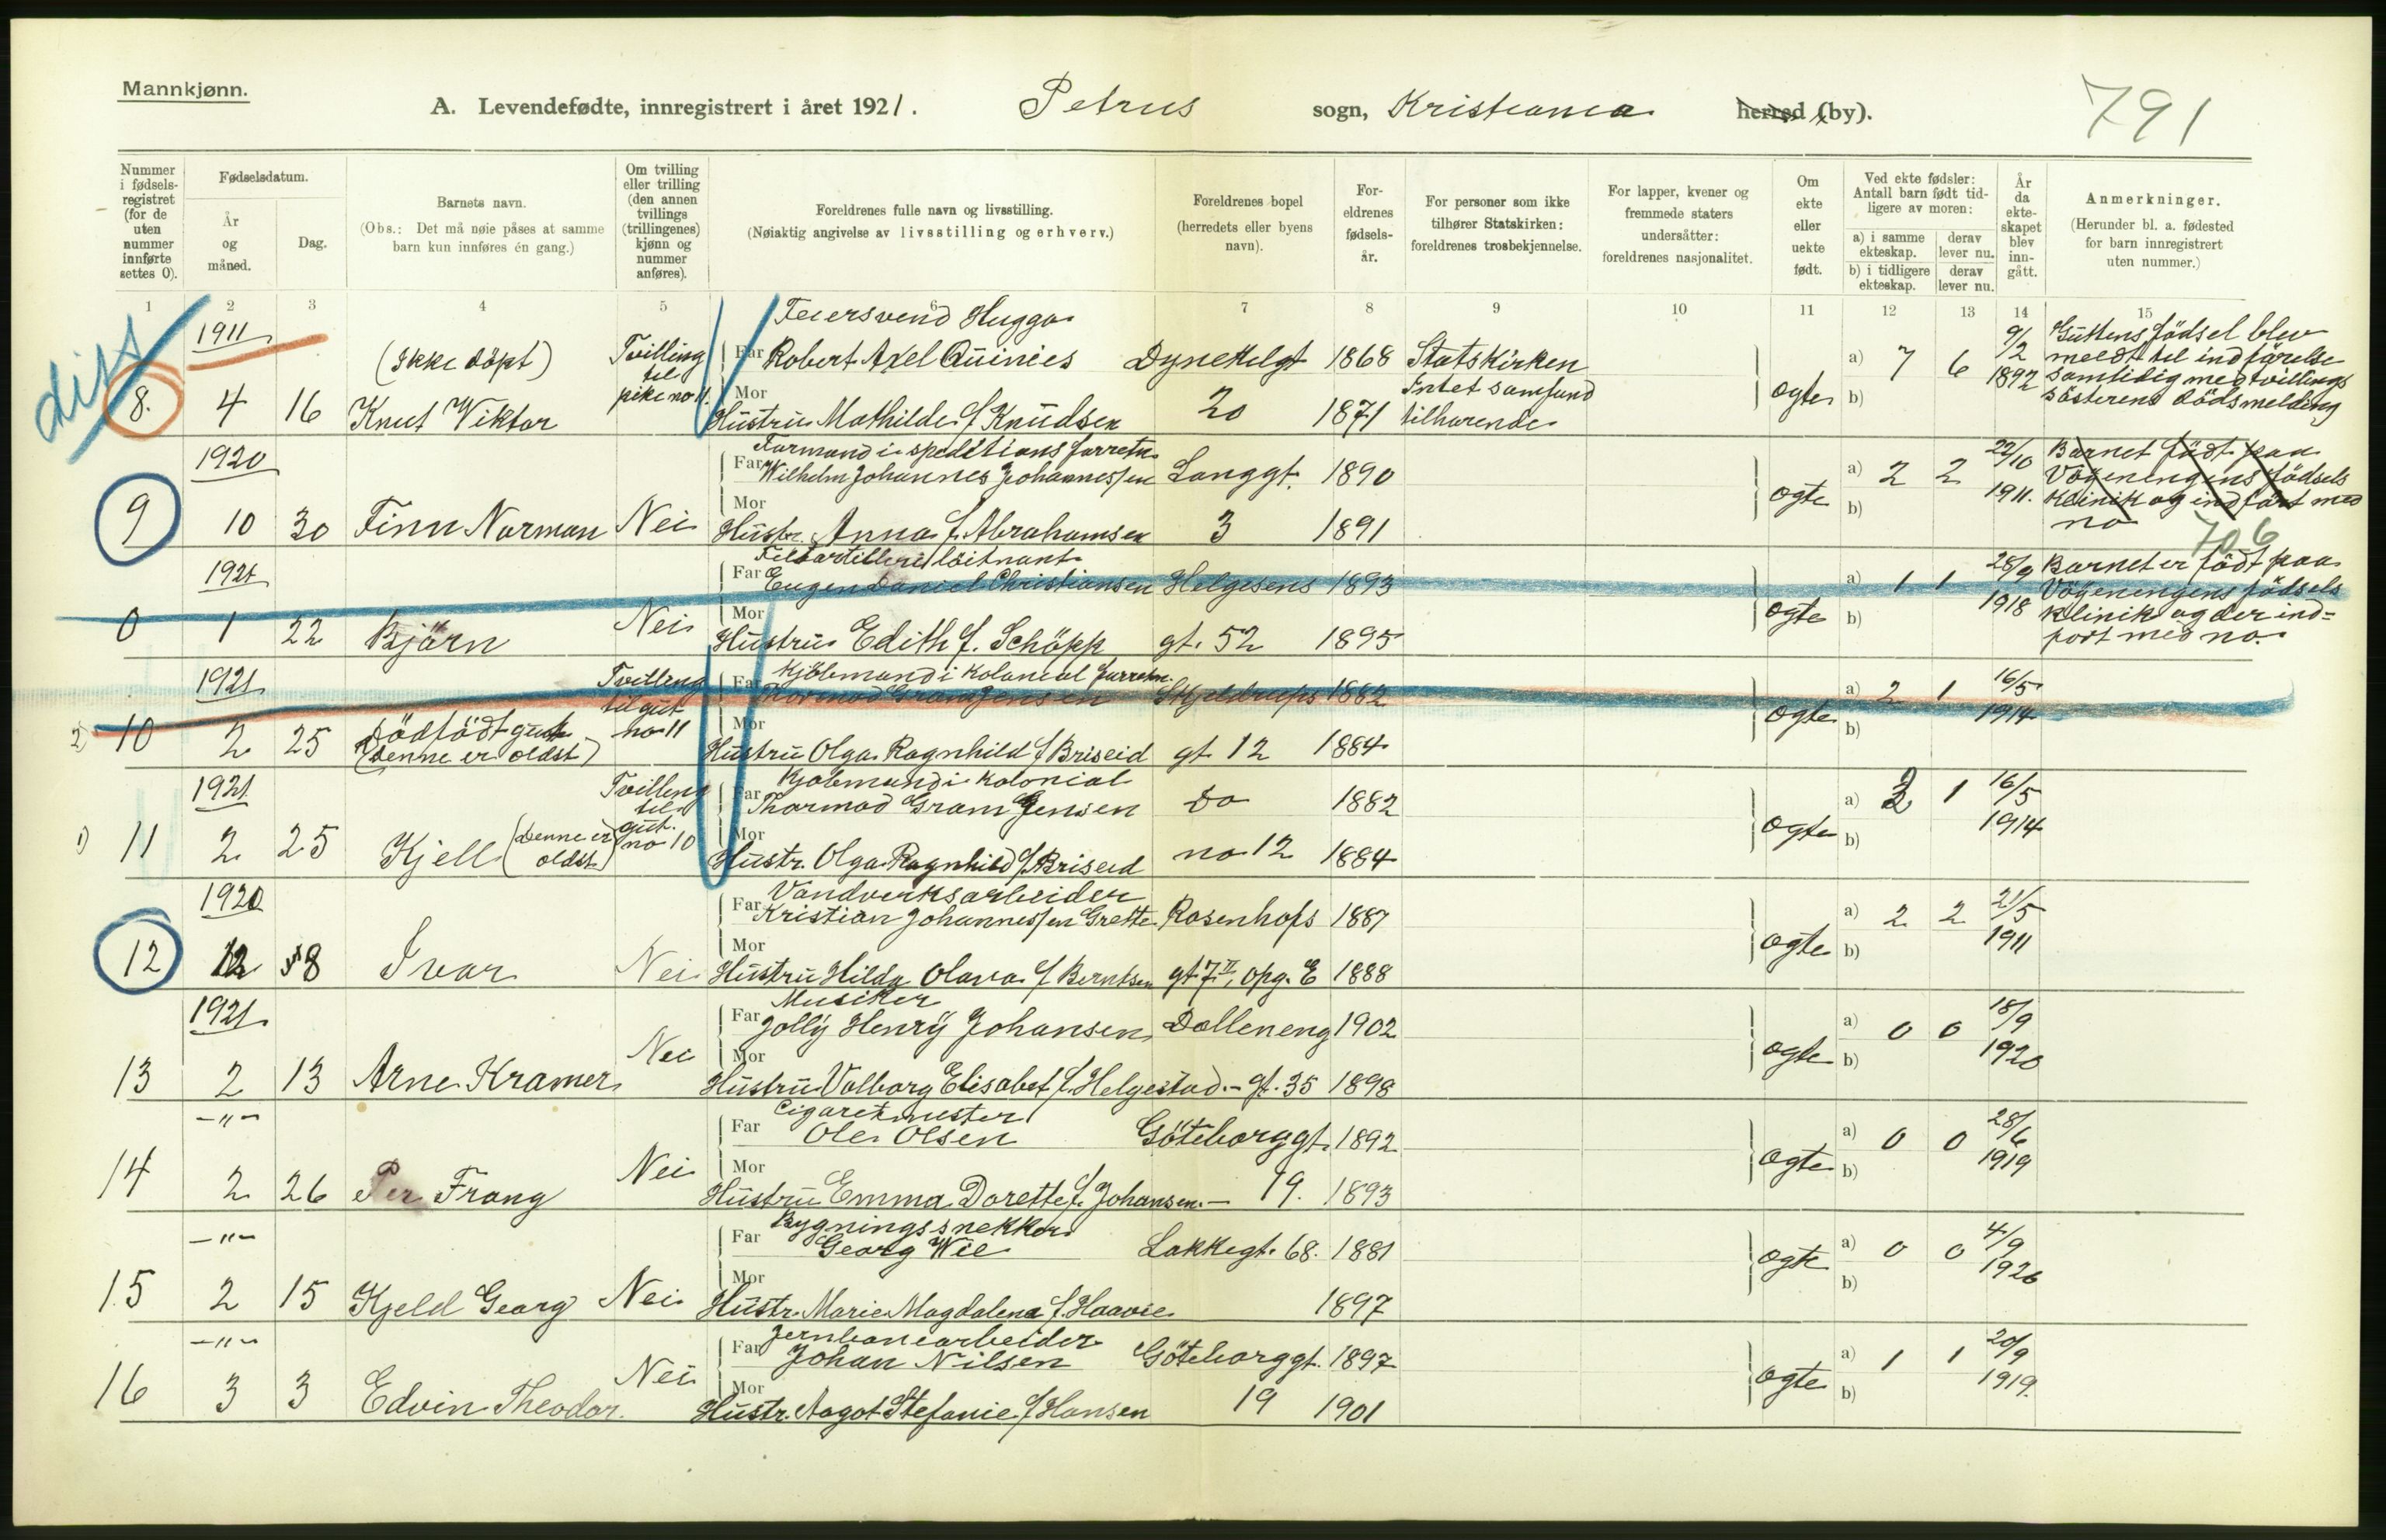 Mannkjønn.
A. Levendefødte, innregistrert i året 1921. Petrus sogn, Kristiania herred (by). 791
Nummer i fødsels-registret (for de uten nummer innførte settes 0).
Fødselsdatum.
År og måned.
Dag.
Barnets navn.
(Obs.: Det må nøie påses at samme barn kun innføres én gang.)
Om tvilling eller trilling (den annen tvillings (trillingenes) kjønn og nummer anføres).
Foreldrenes fulle navn og livsstilling.
(Nøiaktig angivelse av livsstilling og erhverv.)
Foreldrenes bopel (herredets eller byens navn).
Foreldrenes fødsels-år.
For personer som ikke tilhører Statskirken: foreldrenes trosbekjennelse.
For lapper, kvener og fremmede staters undersåtter: foreldrenes nasjonalitet.
Om ekte eller uekte født.
Ved ekte fødsler: Antall barn født tidligere av moren:
a) i samme ekteskap. derav lever nu.
b) i tidligere ekteskap. derav lever nu.
År da ekteskapet blev inngått.
Anmerkninger.
(Herunder bl. a. fødested for barn innregistrert uten nummer.)
1 2 3 4 5 6 7 8 9 10 11 12 13 14 15
1911 Feiersvend Hugga
(Ikke döpt) Tvilling til pike no 11. Far Robert Axel Quinies Dynekilgt 1868 Statskirken a) 7 6 9/2 1892
8. 4 16 Knut Viktor Mor Hustru Mathilde f. Knudsen 20 1871 Intet samfund tilhørende ogte b)
Guttens födsel blev meldt til indförelse samtidig med tvillings sösterens dödsmelding
1920 Formand i speditions forretn.
Far Wilhelm Johannes Johannessen Langgt. 1890 a) 2 2 22/10 1911.
9 10 30 Finn Norman Nei Mor Hustr. Anna f. Abrahamsen 3 1891 ogte b)
Barnet födt paa Vöyenengens födsels klinik og indfört med no 706
1921 Feltartilleri löitnant
Far Eugen Daniel Christiansen Helgesens 1893 a) 1 1 28/9 1918
0 1 22 Björn Nei Mor Hustru Edith f. Schöpp gt. 52 1895 ogte b)
Barnet er födt paa Vöyenengens födsels klinik og der indfört med no.
1921 Tvilling til gut no 11 Kjöbmand i kolonial forretn.
Far Thormod Gram Jensen Skjeldrups 1882 a) 2 1 16/5 1914
2) 10 2 25 Dödfödt gut (denne er oldst) Mor Hustru Olga Ragnhild f Briseid gt 12 1884 ogte b)
1921 Tvilling til gut. no 10 Kjöbmand i kolonial
Far Thormod Gram Jensen do 1882 a) 3 1 16/5 1914
1) 11 2 25 Kjell (denne er oldst) Mor Hustr. Olga Ragnhild f Briseid no 12 1884 ogte b)
1920 Vandverksarbeider
Far Kristian Johannessen Grette Rosenhofs 1887 a) 2 2 21/5 1911
12 12 8 Ivar Nei Mor Hustru Hilda Olava f Berntsen gt 7 II, opg. E 1888 ogte b)
1921 Musiker
Far Jolly Henry Johansen Dælleneng 1902 a) 0 0 18/9 1920
13 2 13 Arne Kramer Nei Mor Hustru Valborg Elisabet f. Helgestad.- gt. 35 1898 ogte b)
—"— Cigaretmester
Far Ole Olsen Göteborggt. 1892 a) 0 0 28/6 1919
14 2 26 Per Frang Nei Mor Hustru Emma Dorette f. Johansen.- 19. 1893 ogte b)
—"— Bygningssnekker
Far Georg Wie Lakkegt. 68. 1881 a) 0 0 4/9 1920
15 2 15 Kjeld Georg Nei Mor Hustr. Marie Magdalena f. Haavie 1897 ogte b)
—"— Jernbanearbeider
Far Johan Nilsen Göteborggt. 1897 a) 1 1 20/9 1919.
16 3 3 Edvin Theodor. Nei Mor Hustr. Aagot Stefanie f Hansen 19 1901 ogte b)